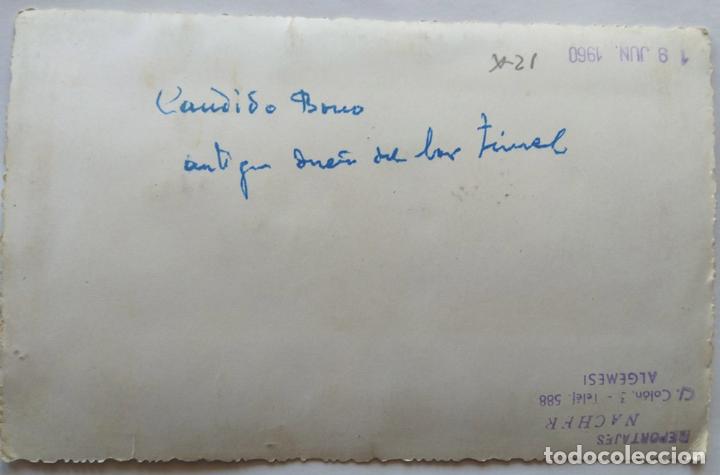 19 JUN. 1960
X-21
Candido Bono
antiguo dueño del bar
REPORTAJES
NACHER
C/. Colón, 3 - Teléf. 588
ALGEMESI
todocoleccion.net